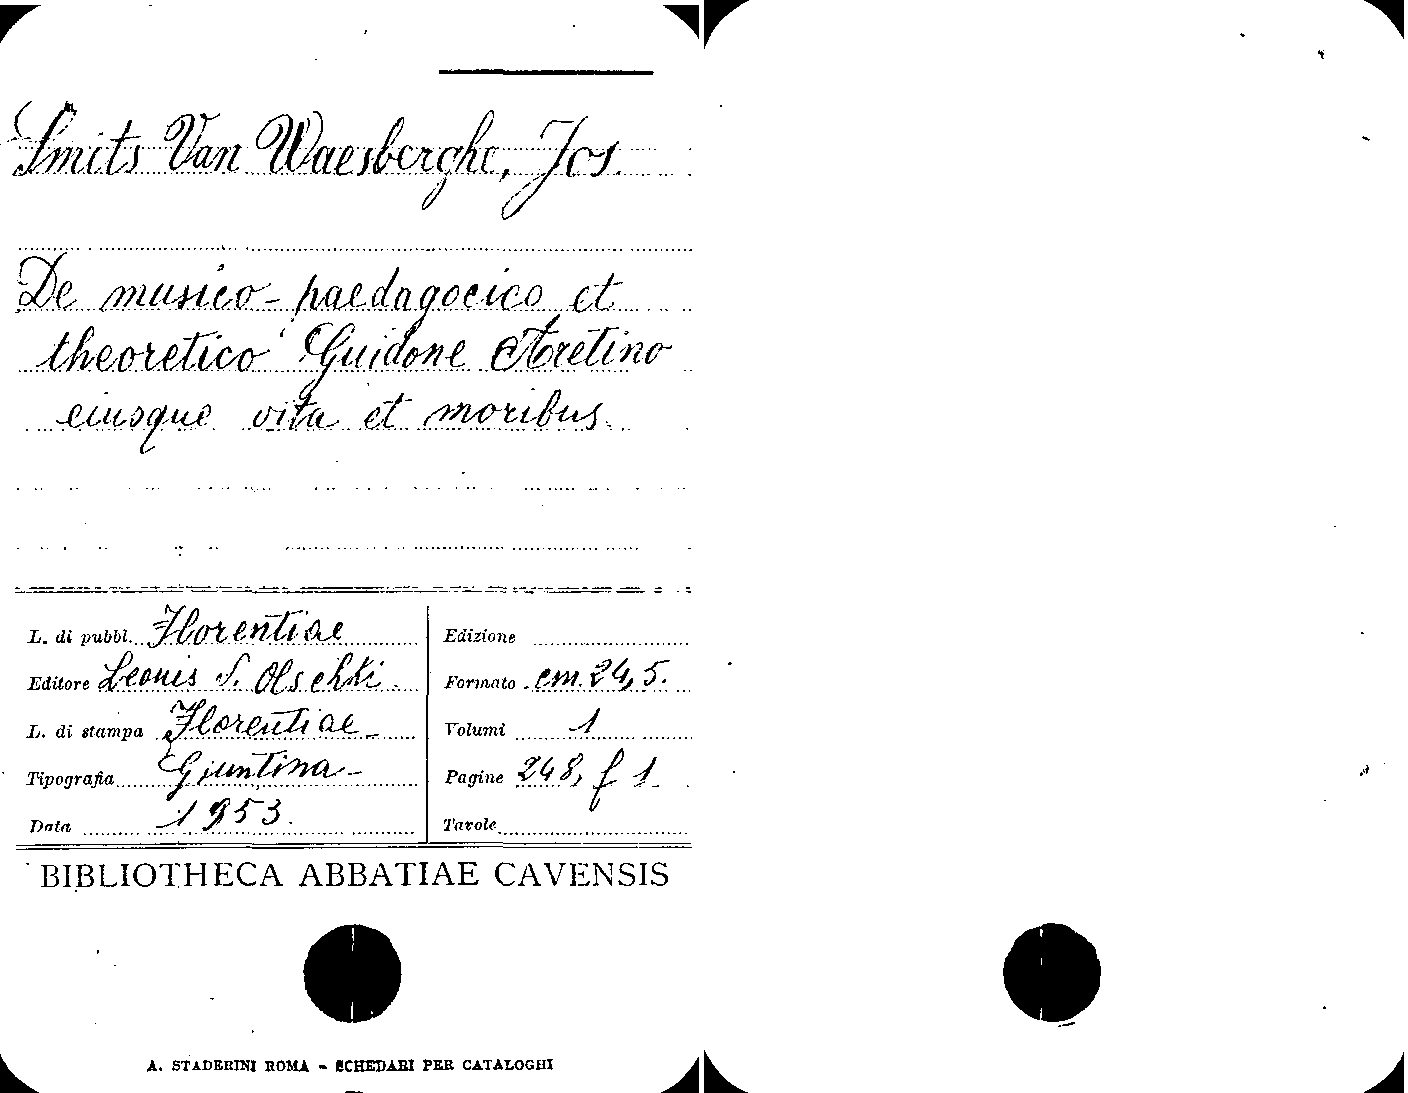 Smits Van Waesberghe, Jos.
De musico-paedagocico et
theoretico Guidone Aretino
eiusque vita et moribus.
L. di pubbl. Florentiae
Editore Leonis S. Olschki
L. di stampa Florentiae
Tipografia Giuntina
Data 1953.
Edizione
Formato cm. 24,5.
Volumi 1
Pagine 248, f 1.
Tavole
BIBLIOTHECA ABBATIAE CAVENSIS
A. STADERINI ROMA - SCHEDARI PER CATALOGHI